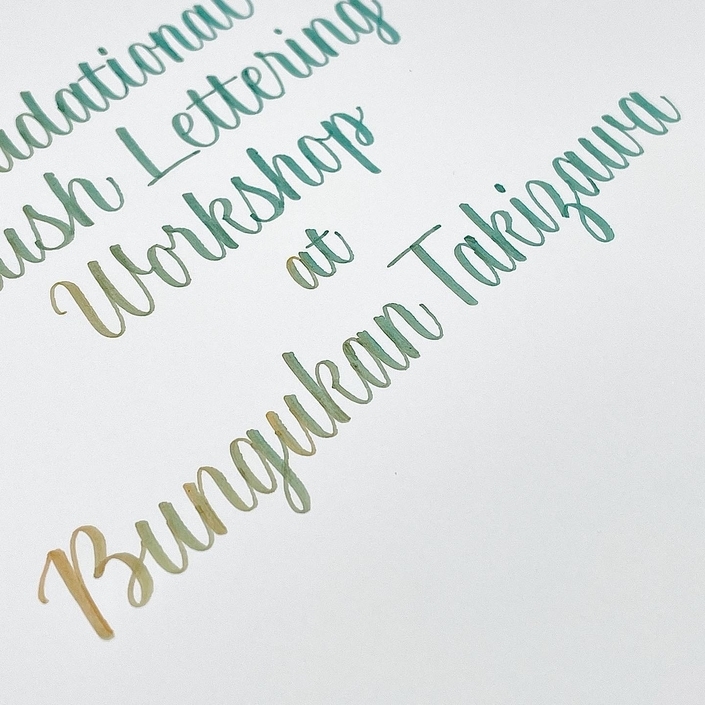 adational
ush Lettering
Workshop
at
Bungukan Takizawa